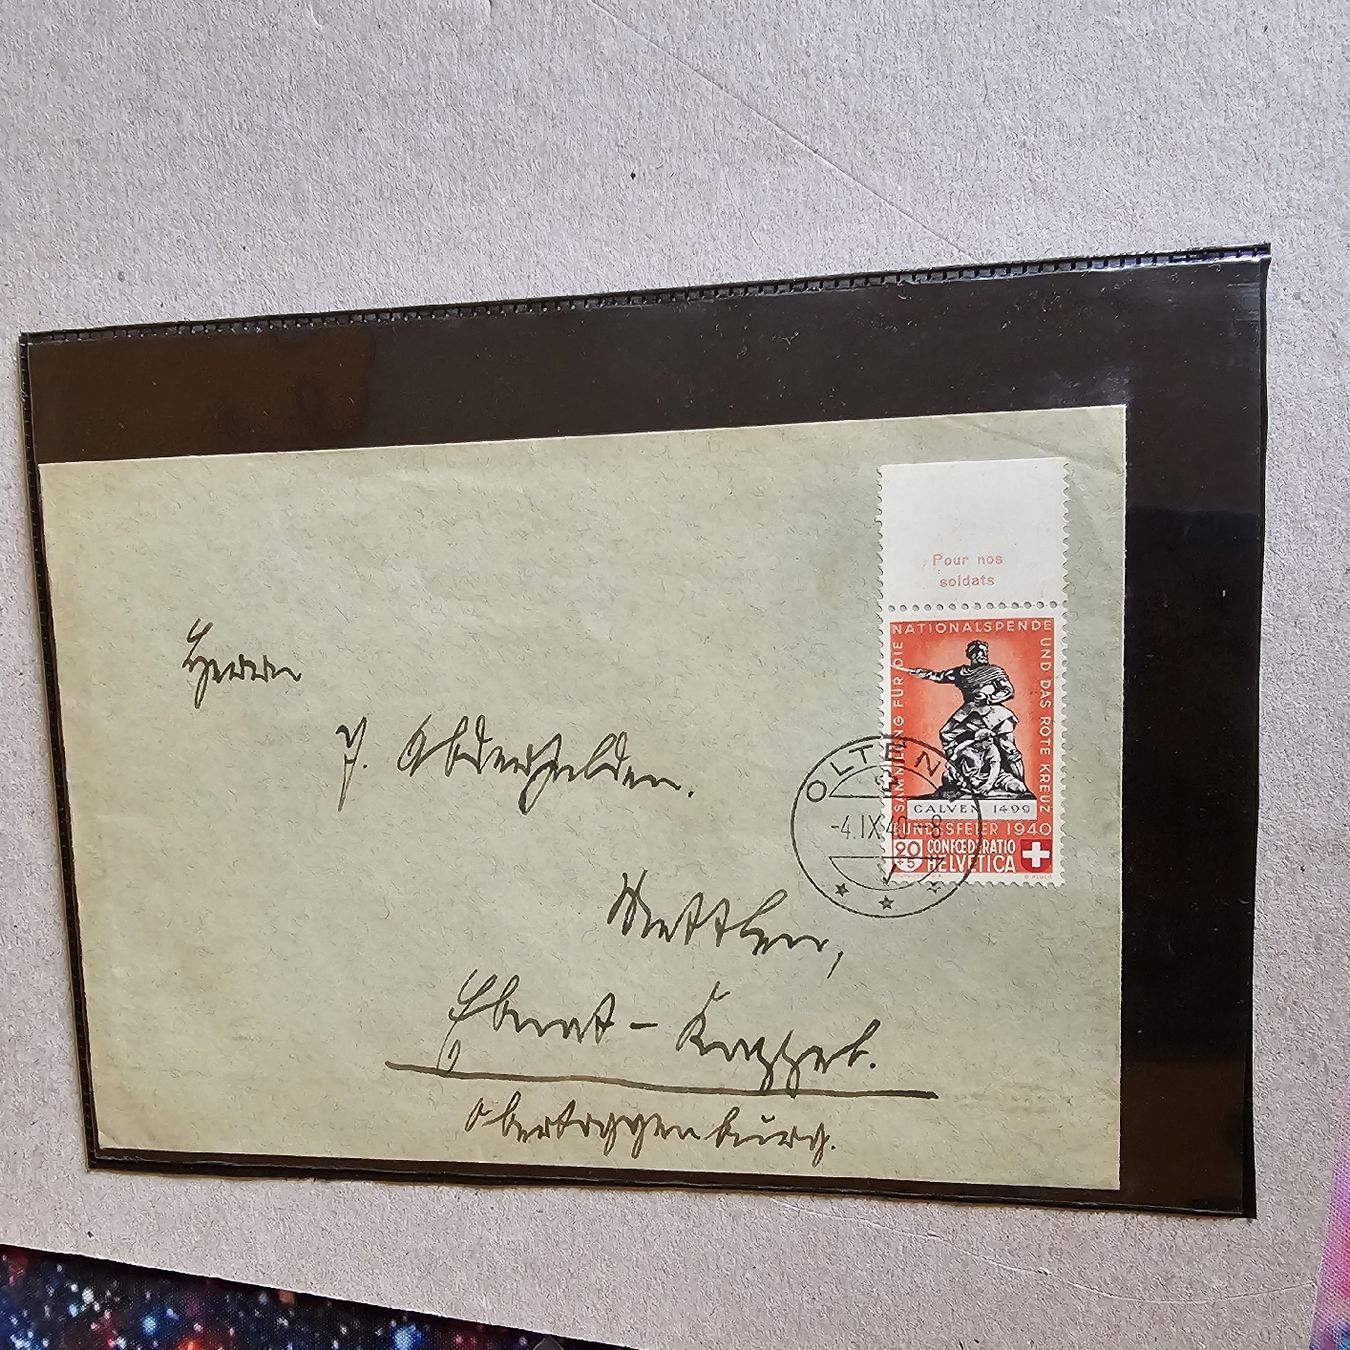 Pour nos
soldats
SAMMLUNG FÜR DIE NATIONALSPENDE UND DAS ROTE KREUZ
CALVEN 1499
BUNDESFEIER 1940
20
+5
CONFŒDERATIO
HELVETICA
OLTEN
-4.IX.40-8
Herrn
J. Abderhalden.
Wattwil,
Ebnat-Kappel.
Obertoggenburg.